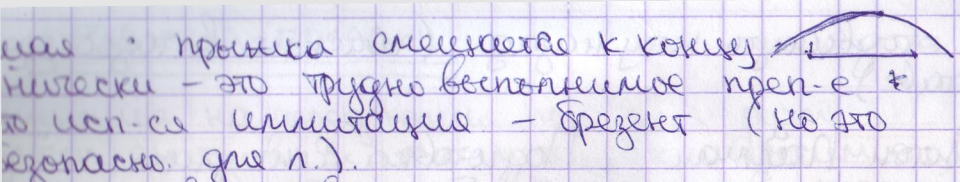 ная · прыжка смещается к концу
нически – это трудно выспольнимое преп-е *
то исп-ся иммитация – брезент (но это
езопасно. для л.).